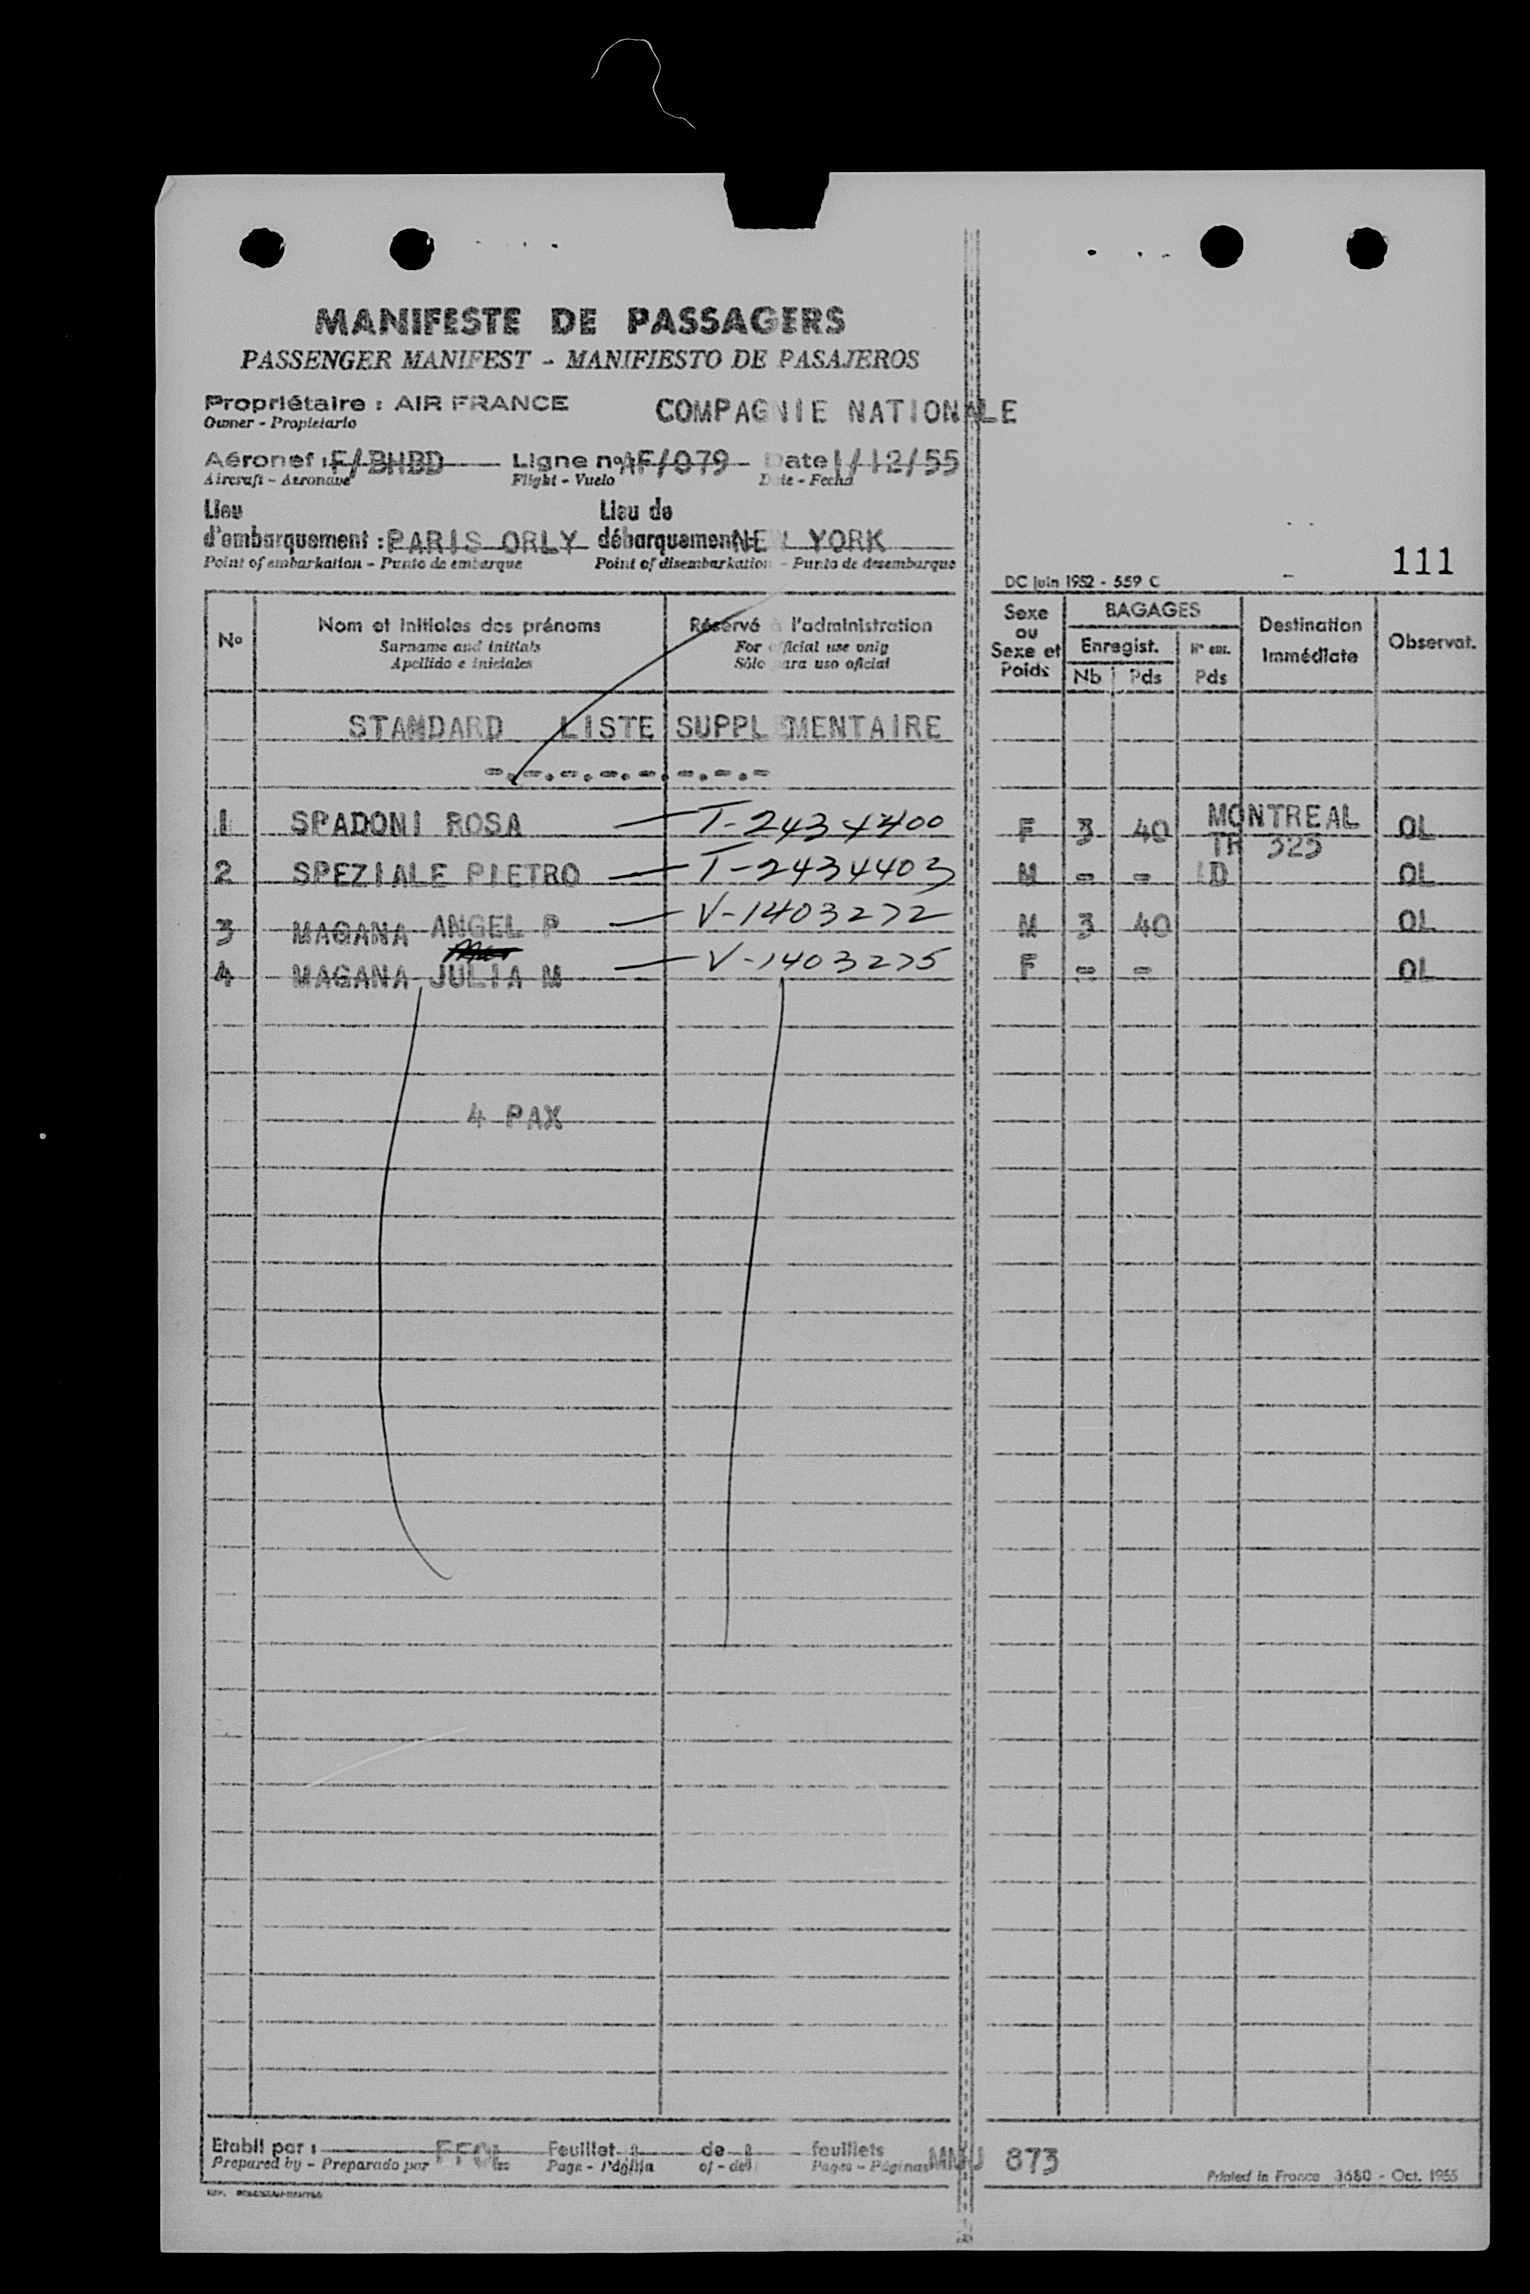 MANIFESTE DE PASSAGERS
PASSENGER MANIFEST - MANIFIESTO DE PASAJEROS
Propriétaire : AIR FRANCE COMPAGNIE NATIONALE
Owner - Propietario
Aéronef : F/BHBD Ligne n° AF/079 Date 1/12/55
Aircraft - Aeronave Flight - Vuelo Date - Fecha
Lieu Lieu de
d'embarquement : PARIS ORLY débarquement NEW YORK
Point of embarkation - Punto de embarque Point of disembarkation - Punto de desembarque
DC juin 1952 - 559 C 111
N° Nom et initiales des prénoms Réservé à l'administration Sexe ou Sexe et Poids BAGAGES Destination Immédiate Observat.
Surname and initials For official use only Enregist.
Apellido e iniciales Sólo para uso oficial Nb Pds Pds
STAMDARD LISTE SUPPLEMENTAIRE
-.-.-.-.-.-.-.-
1 SPADONI ROSA T-2434400 F 3 40 MONTREAL OL
TR 325
2 SPEZIALE PIETRO T-2434403 M - - ID OL
3 MAGANA ANGEL P V-1403272 M 3 40 OL
4 MAGANA JULIA M V-1403275 F - - OL
4 PAX
Etabli par : Feuillet de feuillets MNU 873
Prepared by - Preparado por Page - Página of - del Pages - Páginas
Printed in France 3680 - Oct. 1955